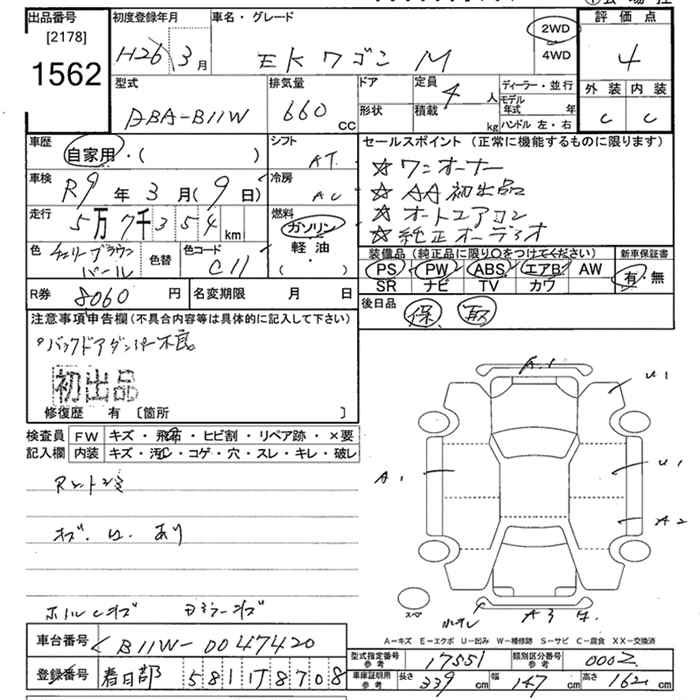 出品番号 初度登録年月 車名・グレード 評価点
[2178]
1562
H26年3月 EKワゴン M 2WD 4WD 4
型式 排気量 ドア 定員 ディーラー・並行 外装 内装
DBA-B11W 660 CC 形状 積載 4人 kg モデル年式 年 ハンドル 左・右 C C
車歴 自家用・( ) シフト AT
セールスポイント (正常に機能するものに限ります)
☆ワンオーナー
☆AA初出品
☆オートエアコン
☆純正オーディオ
車検 R9年3月(9日) 冷房 AC
走行 5万7千354km 燃料 ガソリン 軽油 ( ・ )
色 チェリーブラウンパール 色替 色コード C11
装備品 (純正品に限り○をつけてください) 新車保証書
PS PW ABS エアB AW 有・無
SR ナビ TV カワ
R券 8060円 名変期限 月 日
後日品 保 取
注意事項申告欄(不具合内容等は具体的に記入して下さい)
。バックドアダンパー不良
初出品
修復歴 有 〔箇所 〕
検査員記入欄 FW キズ・飛石・ヒビ割・リペア跡・×要
内装 キズ・汚れ・コゲ・穴・スレ・キレ・破レ
キズ・凹 あり
A1
U1
A1
U1
A2
A3
A-キズ E-エクボ U-凹み W-補修跡 S-サビ C-腐食 XX-交換済
車台番号 B11W-0047420
型式指定番号 参考 17551 類別区分番号 参考 0002
登録番号 春日部 581 す 8708
車庫証明用 参考 長さ 339cm 幅 147cm 高さ 162cm